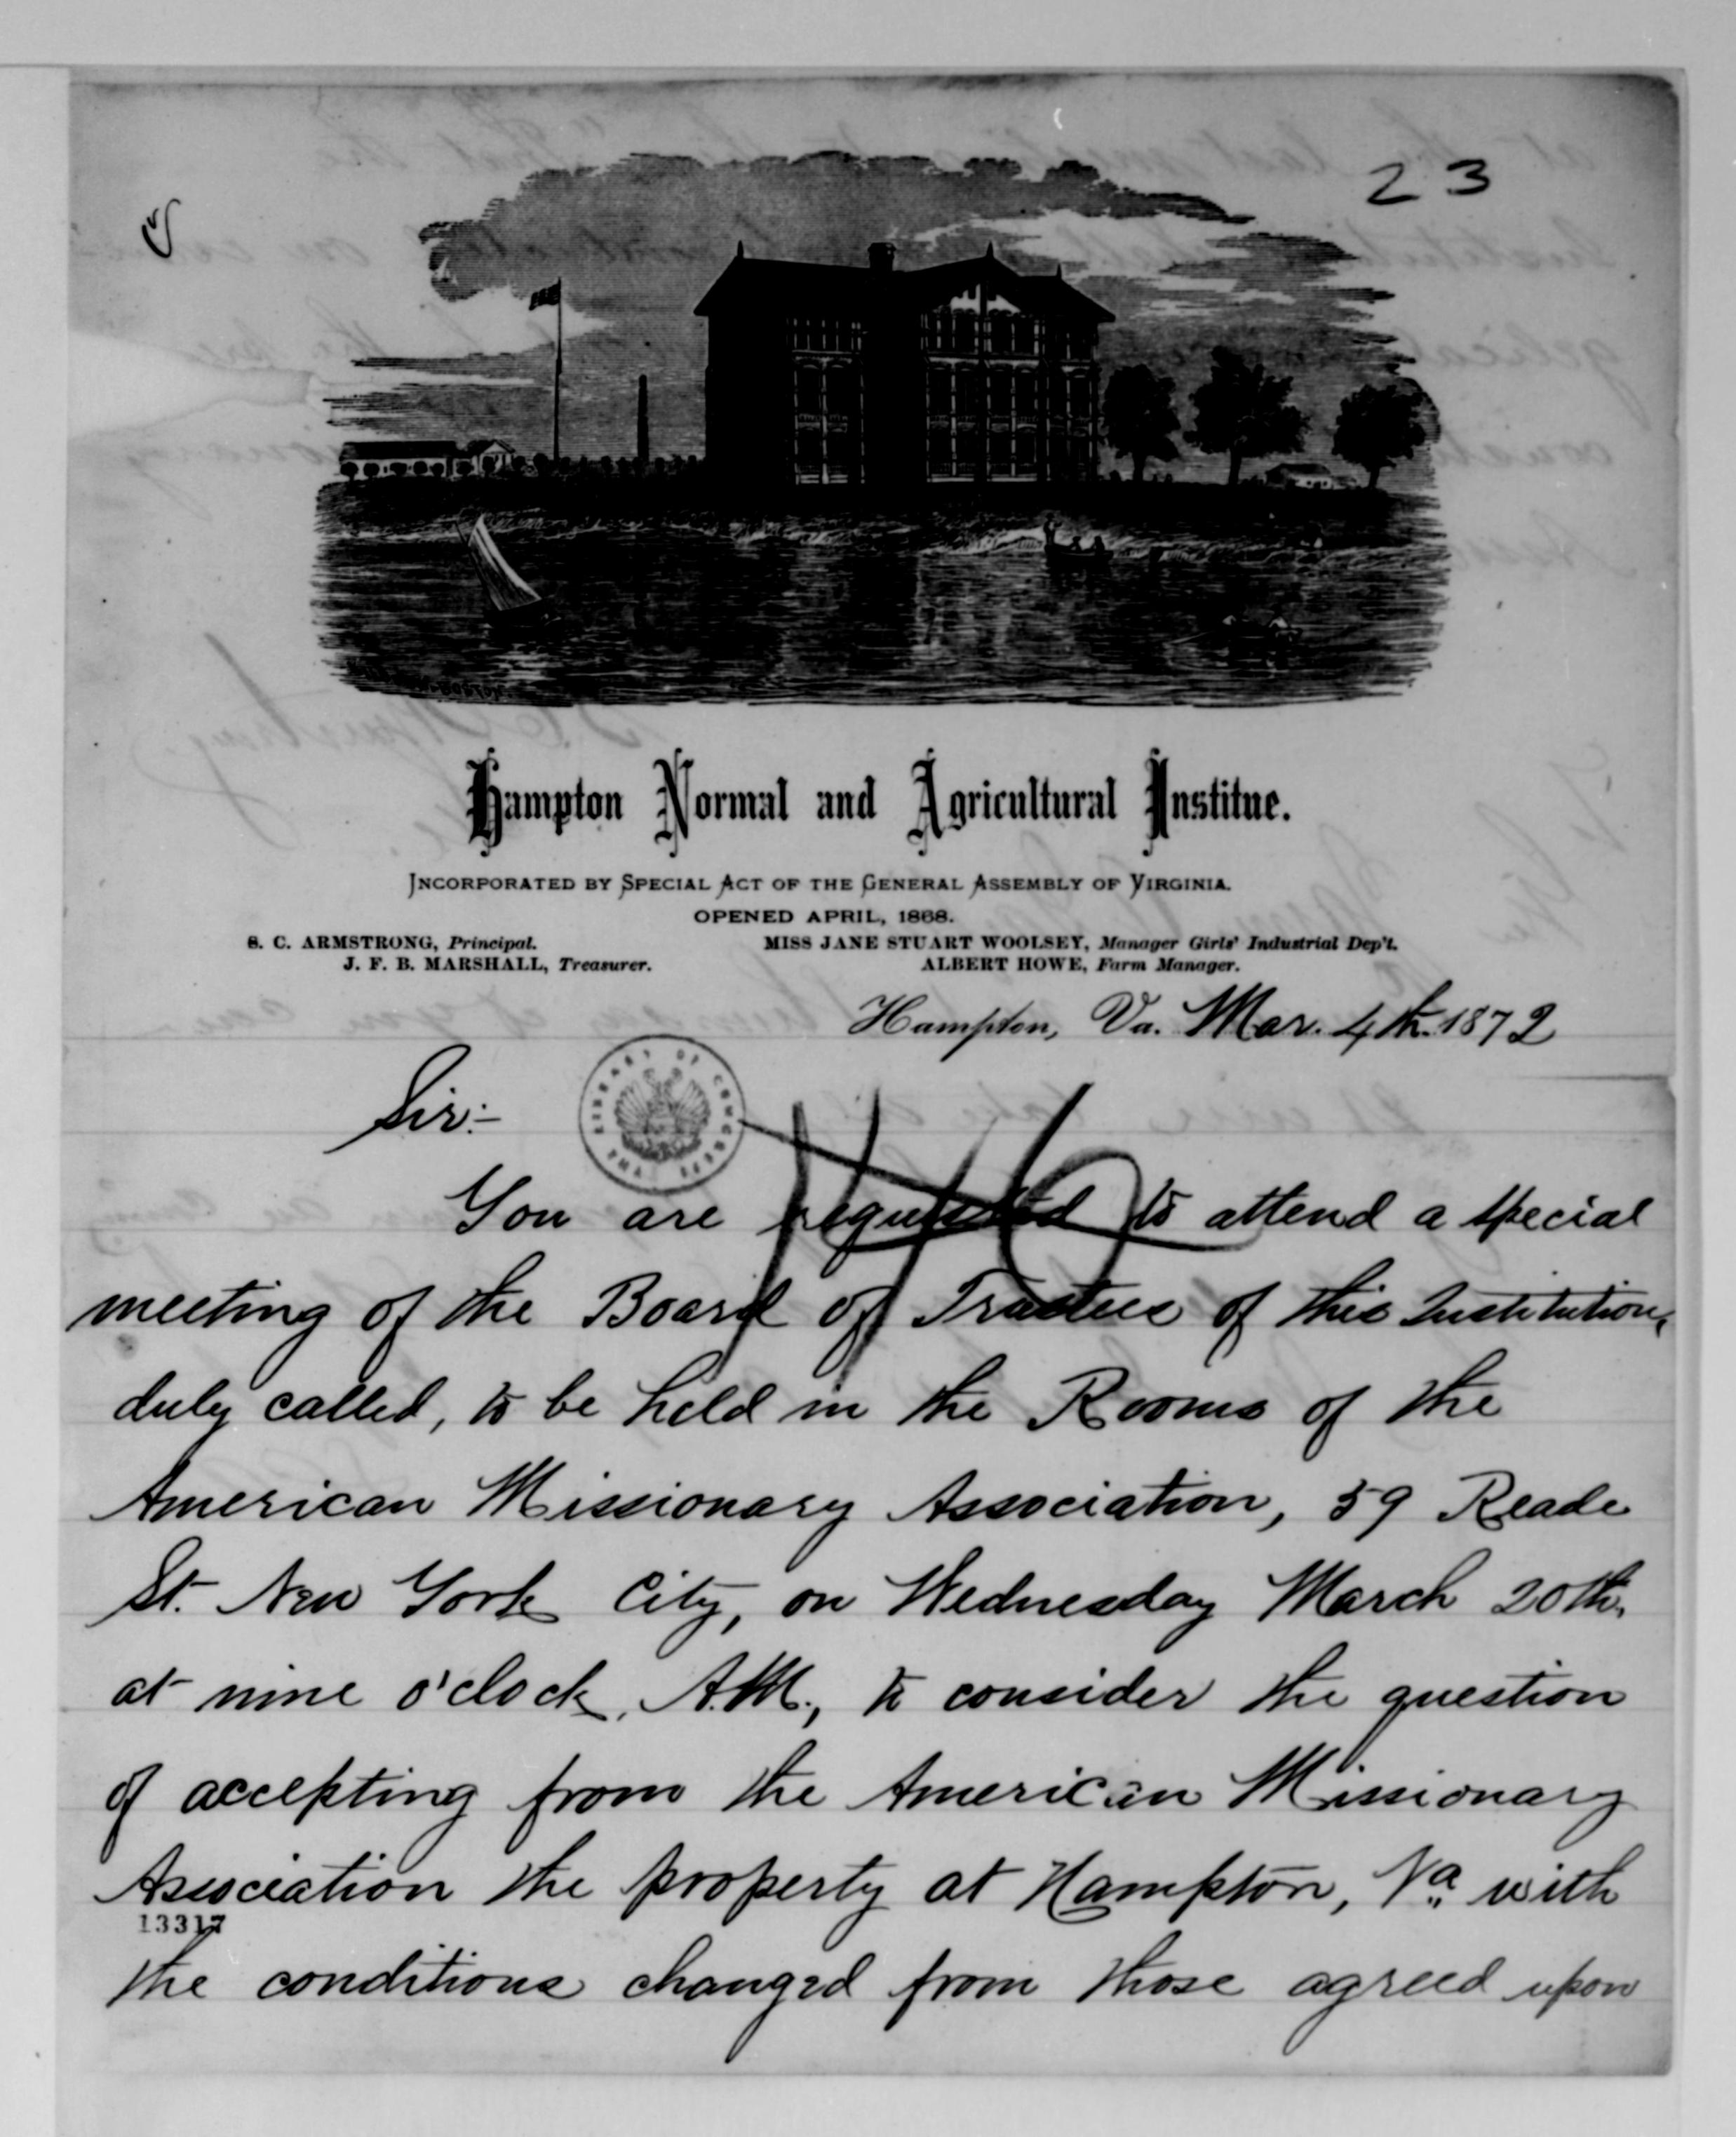 23
Hampton Normal and Agricultural Institue.
INCORPORATED BY SPECIAL ACT OF THE GENERAL ASSEMBLY OF VIRGINIA.
OPENED APRIL, 1868.
S. C. ARMSTRONG, Principal. MISS JANE STUART WOOLSEY, Manager Girls' Industrial Dep't.
J. F. B. MARSHALL, Treasurer. ALBERT HOWE, Farm Manager.
Hampton, Va. Mar. 4th. 1872
Sir:-
THE LIBRARY OF CONGRESS
You are requested to attend a special
meeting of the Board of Trustees of this Institution,
duly called, to be held in the Rooms of the
American Missionary Association, 59 Reade
St. New York City, on Wednesday March 20th,
at nine o'clock, A.M., to consider the question
of accepting from the American Missionary
Association the property at Hampton, Va. with
13317
the conditions changed from those agreed upon